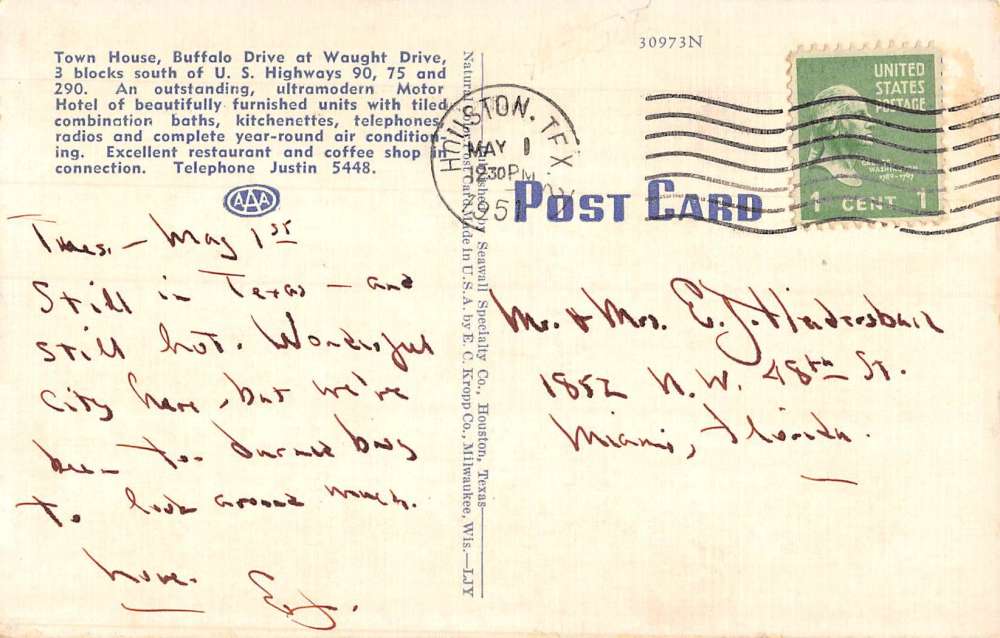 30973N
Town House, Buffalo Drive at Waught Drive,
3 blocks south of U. S. Highways 90, 75 and
290. An outstanding, ultramodern Motor
Hotel of beautifully furnished units with tiled
combination baths, kitchenettes, telephones,
radios and complete year-round air condition-
ing. Excellent restaurant and coffee shop in
connection. Telephone Justin 5448.
AAA
Tues. — May 1st
Still in Texas — and
still hot. Wonderful
city here, but we've
been too darned busy
to look around much.
Love.
E.J.
Published by Seawall Specialty Co., Houston, Texas
Natural Color Post Card Made in U.S.A. by E. C. Kropp Co., Milwaukee, Wis.—LJY
HOUSTON, TEX
MAY 1
1230PM
1951
POST CARD
UNITED
STATES
POSTAGE
WASHINGTON
1789-1797
1 CENT 1
Mr. & Mrs. E. J.
1852 N.W. 48th St.
Miami, Florida.